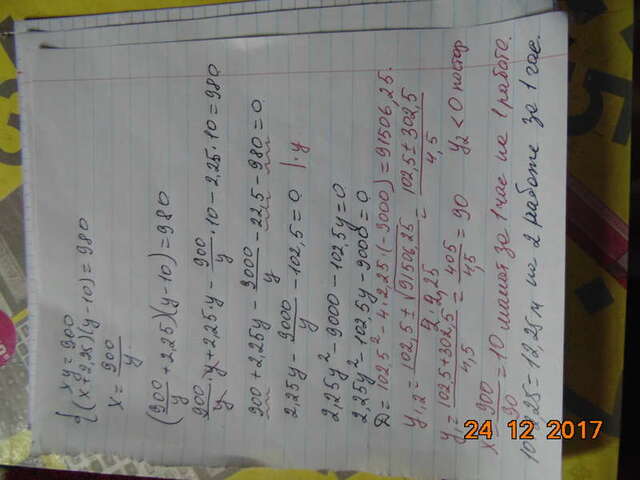 { xy = 900
(x+2,25)(y-10) = 980
x = 900/y
(900/y + 2,25)(y-10) = 980
900/y · y + 2,25·y - 900/y · 10 - 2,25·10 = 980
900 + 2,25y - 9000/y - 22,5 - 980 = 0
2,25y - 9000/y - 102,5 = 0 | · y
2,25y² - 9000 - 102,5y = 0
2,25y² - 102,5y - 9000 = 0
D = 102,5² - 4·2,25·(-9000) = 91506,25.
y₁,₂ = (102,5 ± √91506,25)/(2·2,25) = (102,5 ± 302,5)/4,5
y₁ = (102,5+302,5)/4,5 = 405/4,5 = 90 y₂ < 0 постор
x = 900/90 = 10 за 1 час на 1 работе.
10+2,25 = 12,25 м на 2 работе за 1 час.
24 12 2017